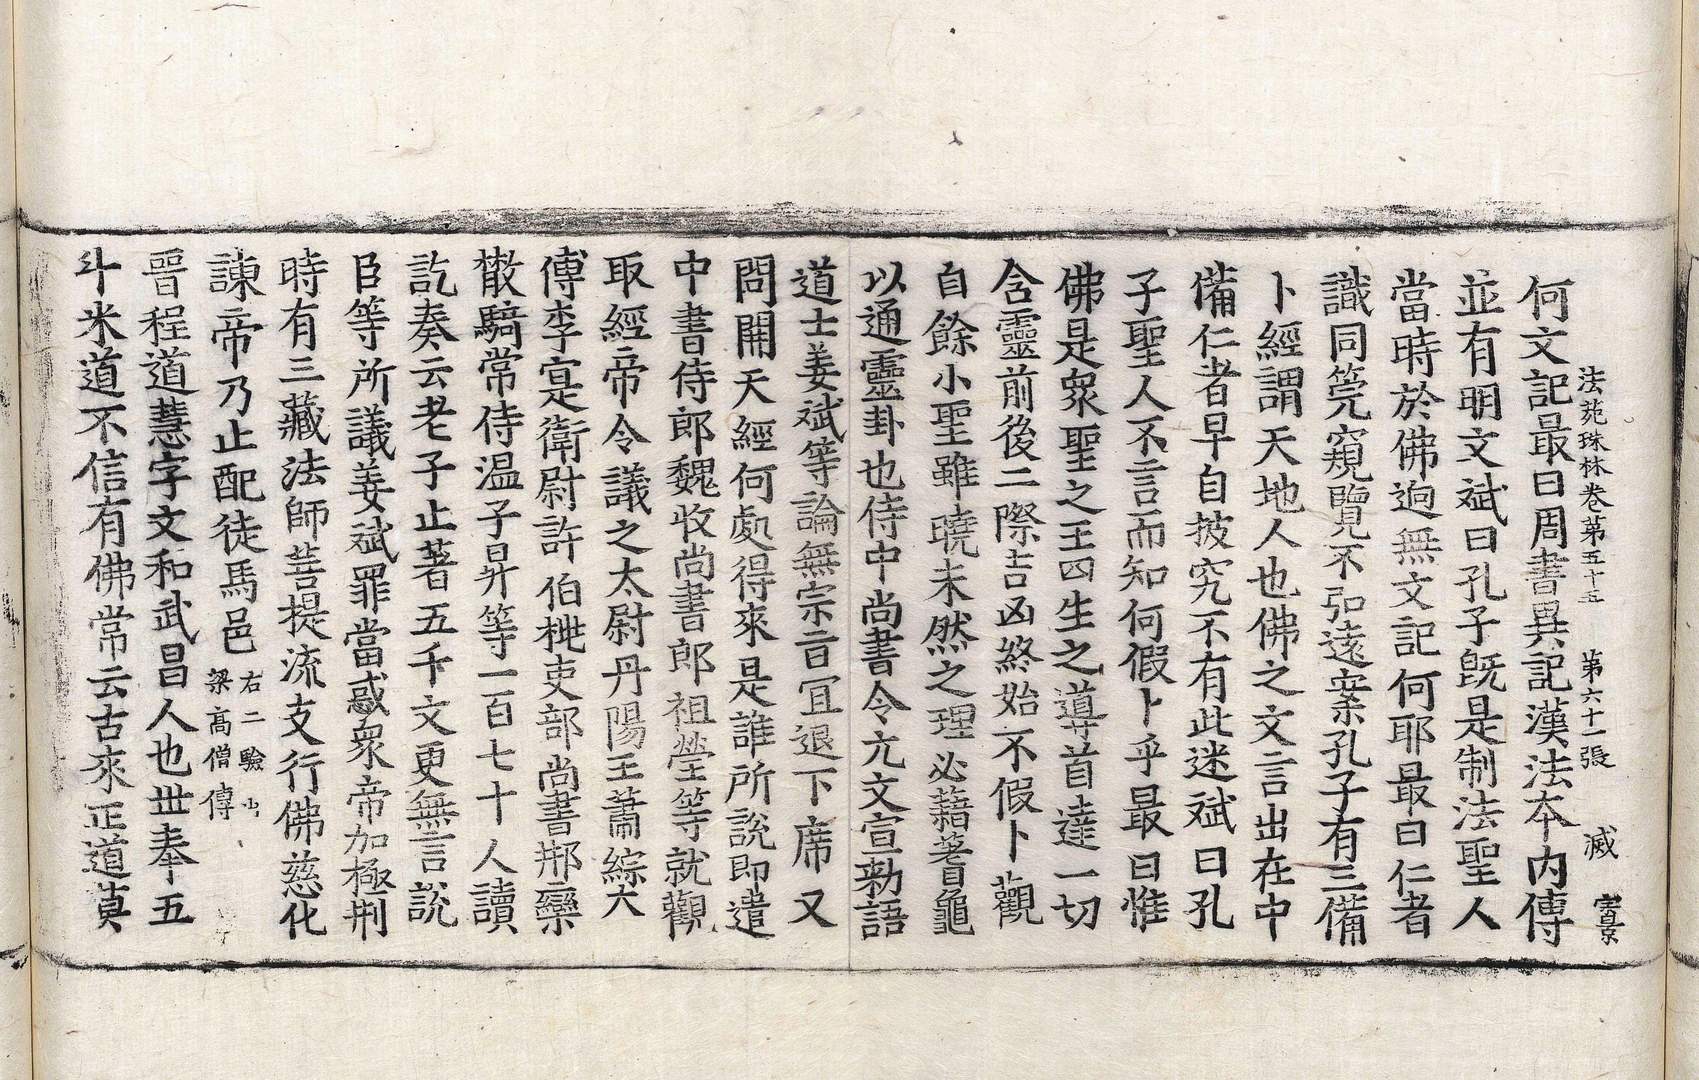 法苑珠林卷第五十五 第六十一張 㓕 寶景
何文記最曰周書異記漢法本內傳
並有明文斌曰孔子旣是制法聖人
當時於佛逈無文記何耶最曰仁者
識同筦窺覽不弘遠案孔子有三備
卜經謂天地人也佛之文言出在中
備仁者早自披究不有此迷斌曰孔
子聖人不言而知何假卜乎最曰惟
佛是衆聖之王四生之導首達一切
含靈前後二際吉凶終始不假卜觀
自餘小聖雖曉未然之理必藉蓍龜
以通靈卦也侍中尚書令亢文宣勑語
道士姜斌等論無宗旨冝退下席又
問開天經何處得來是誰所說即遣
中書侍郎魏收尚書郎祖瑩等就觀
取經帝令議之太尉丹陽王蕭綜大
傅李寔衛尉許伯桃吏部尚書邢欒
散騎常侍溫子昇等一百七十人讀
訖奏云老子止著五千文更無言說
臣等所議姜斌罪當惑衆帝加極刑
時有三藏法師菩提流支行佛慈化
諫帝乃止配徒馬邑 右二驗出
梁高僧傳
晉程道慧字文和武昌人也世奉五
斗米道不信有佛常云古來正道莫